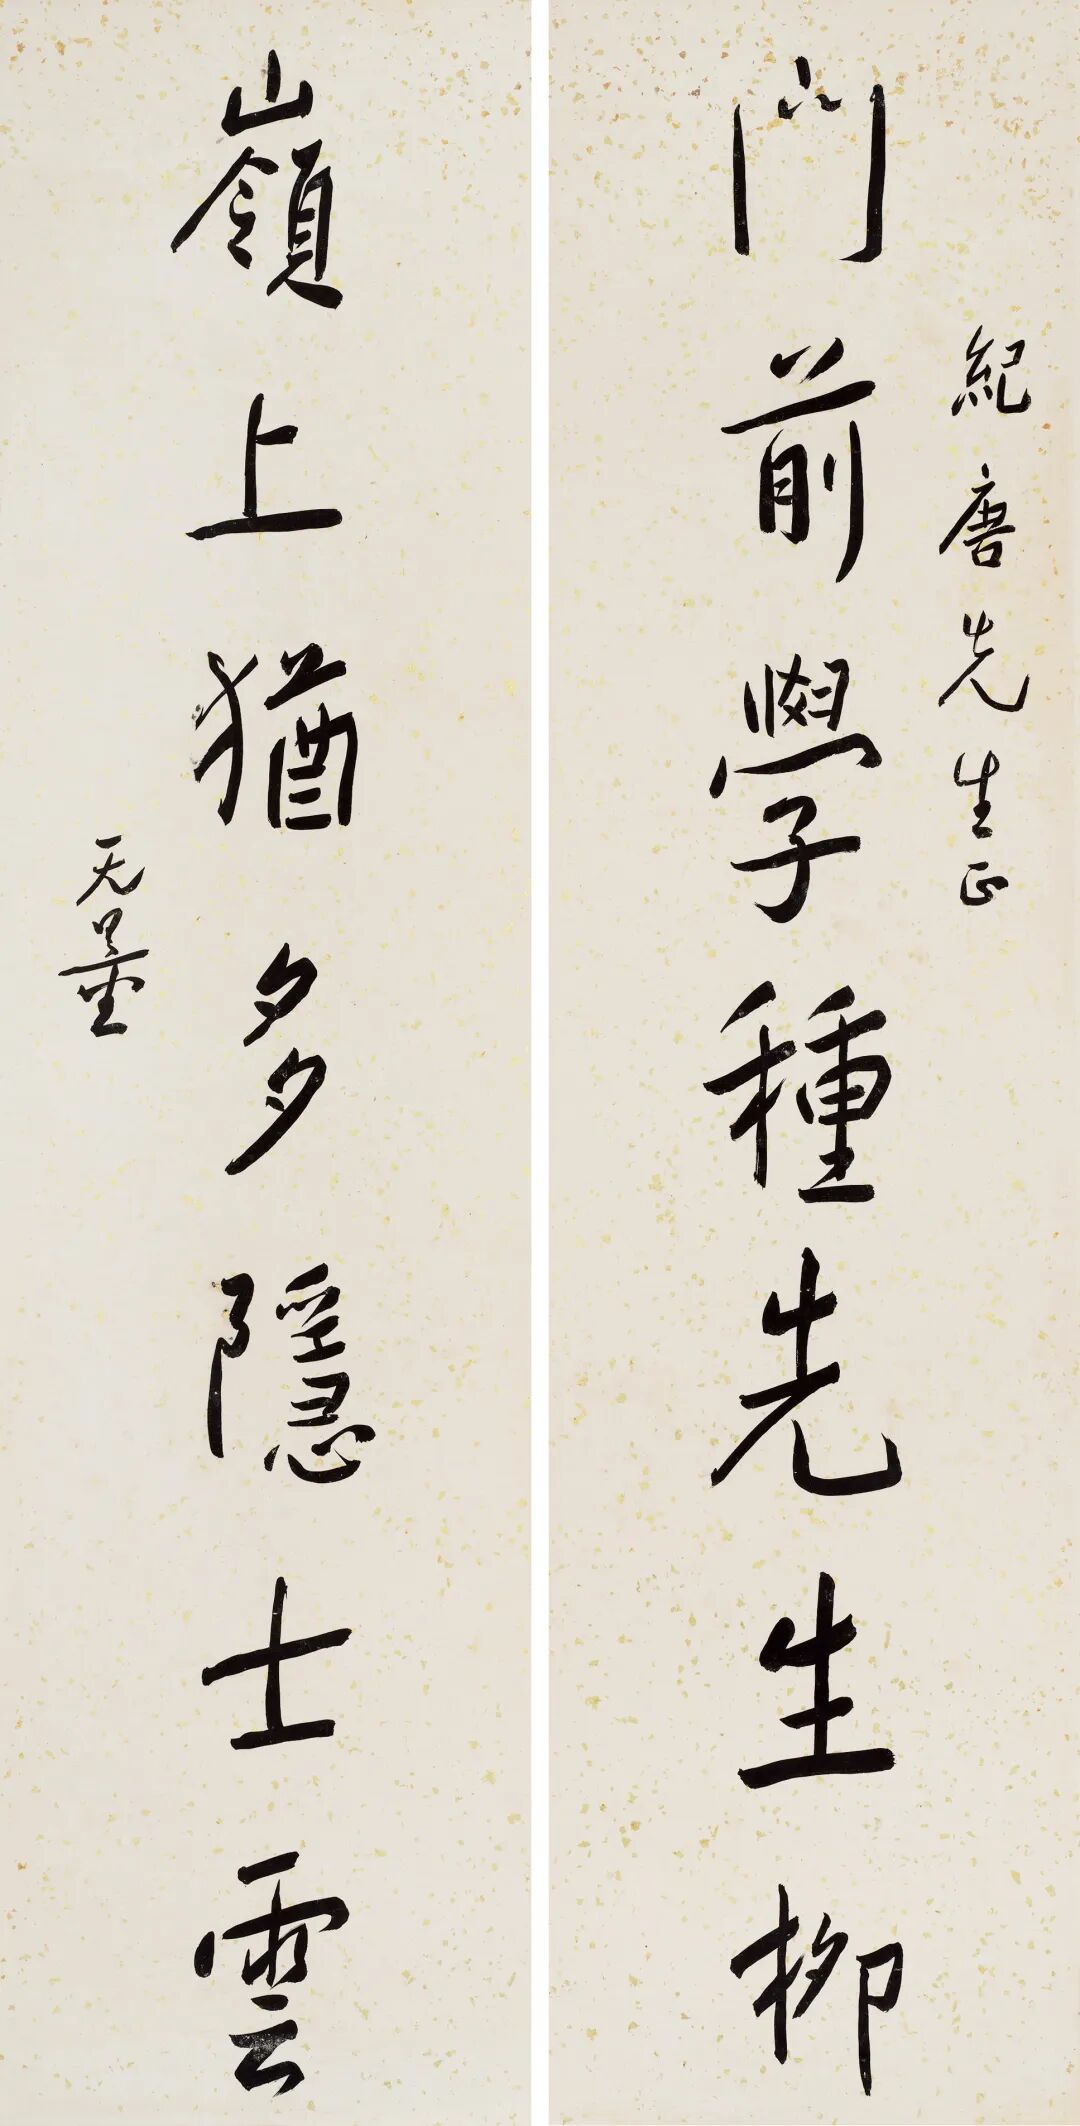 紀唐先生正
門前學種先生柳
嶺上猶多隱士雲
无量